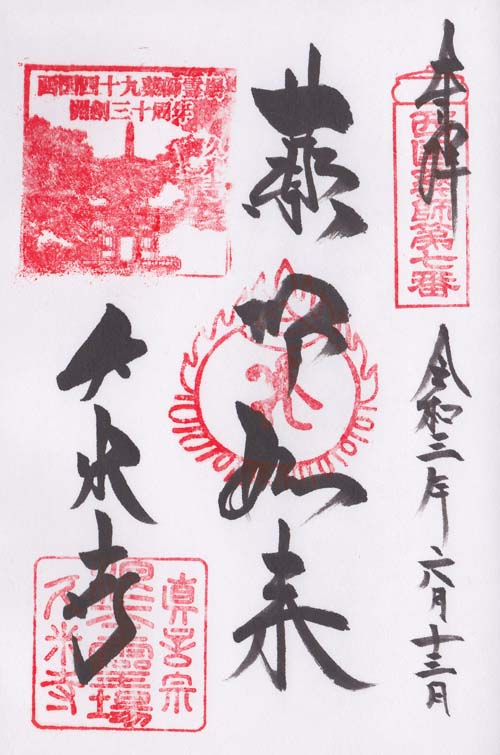 奉拝
西国薬師第七番
令和三年六月十三日
薬师如来
久米寺
西国四十九薬師霊場
開創三十周年
久米寺
真言宗
霊場
久米寺